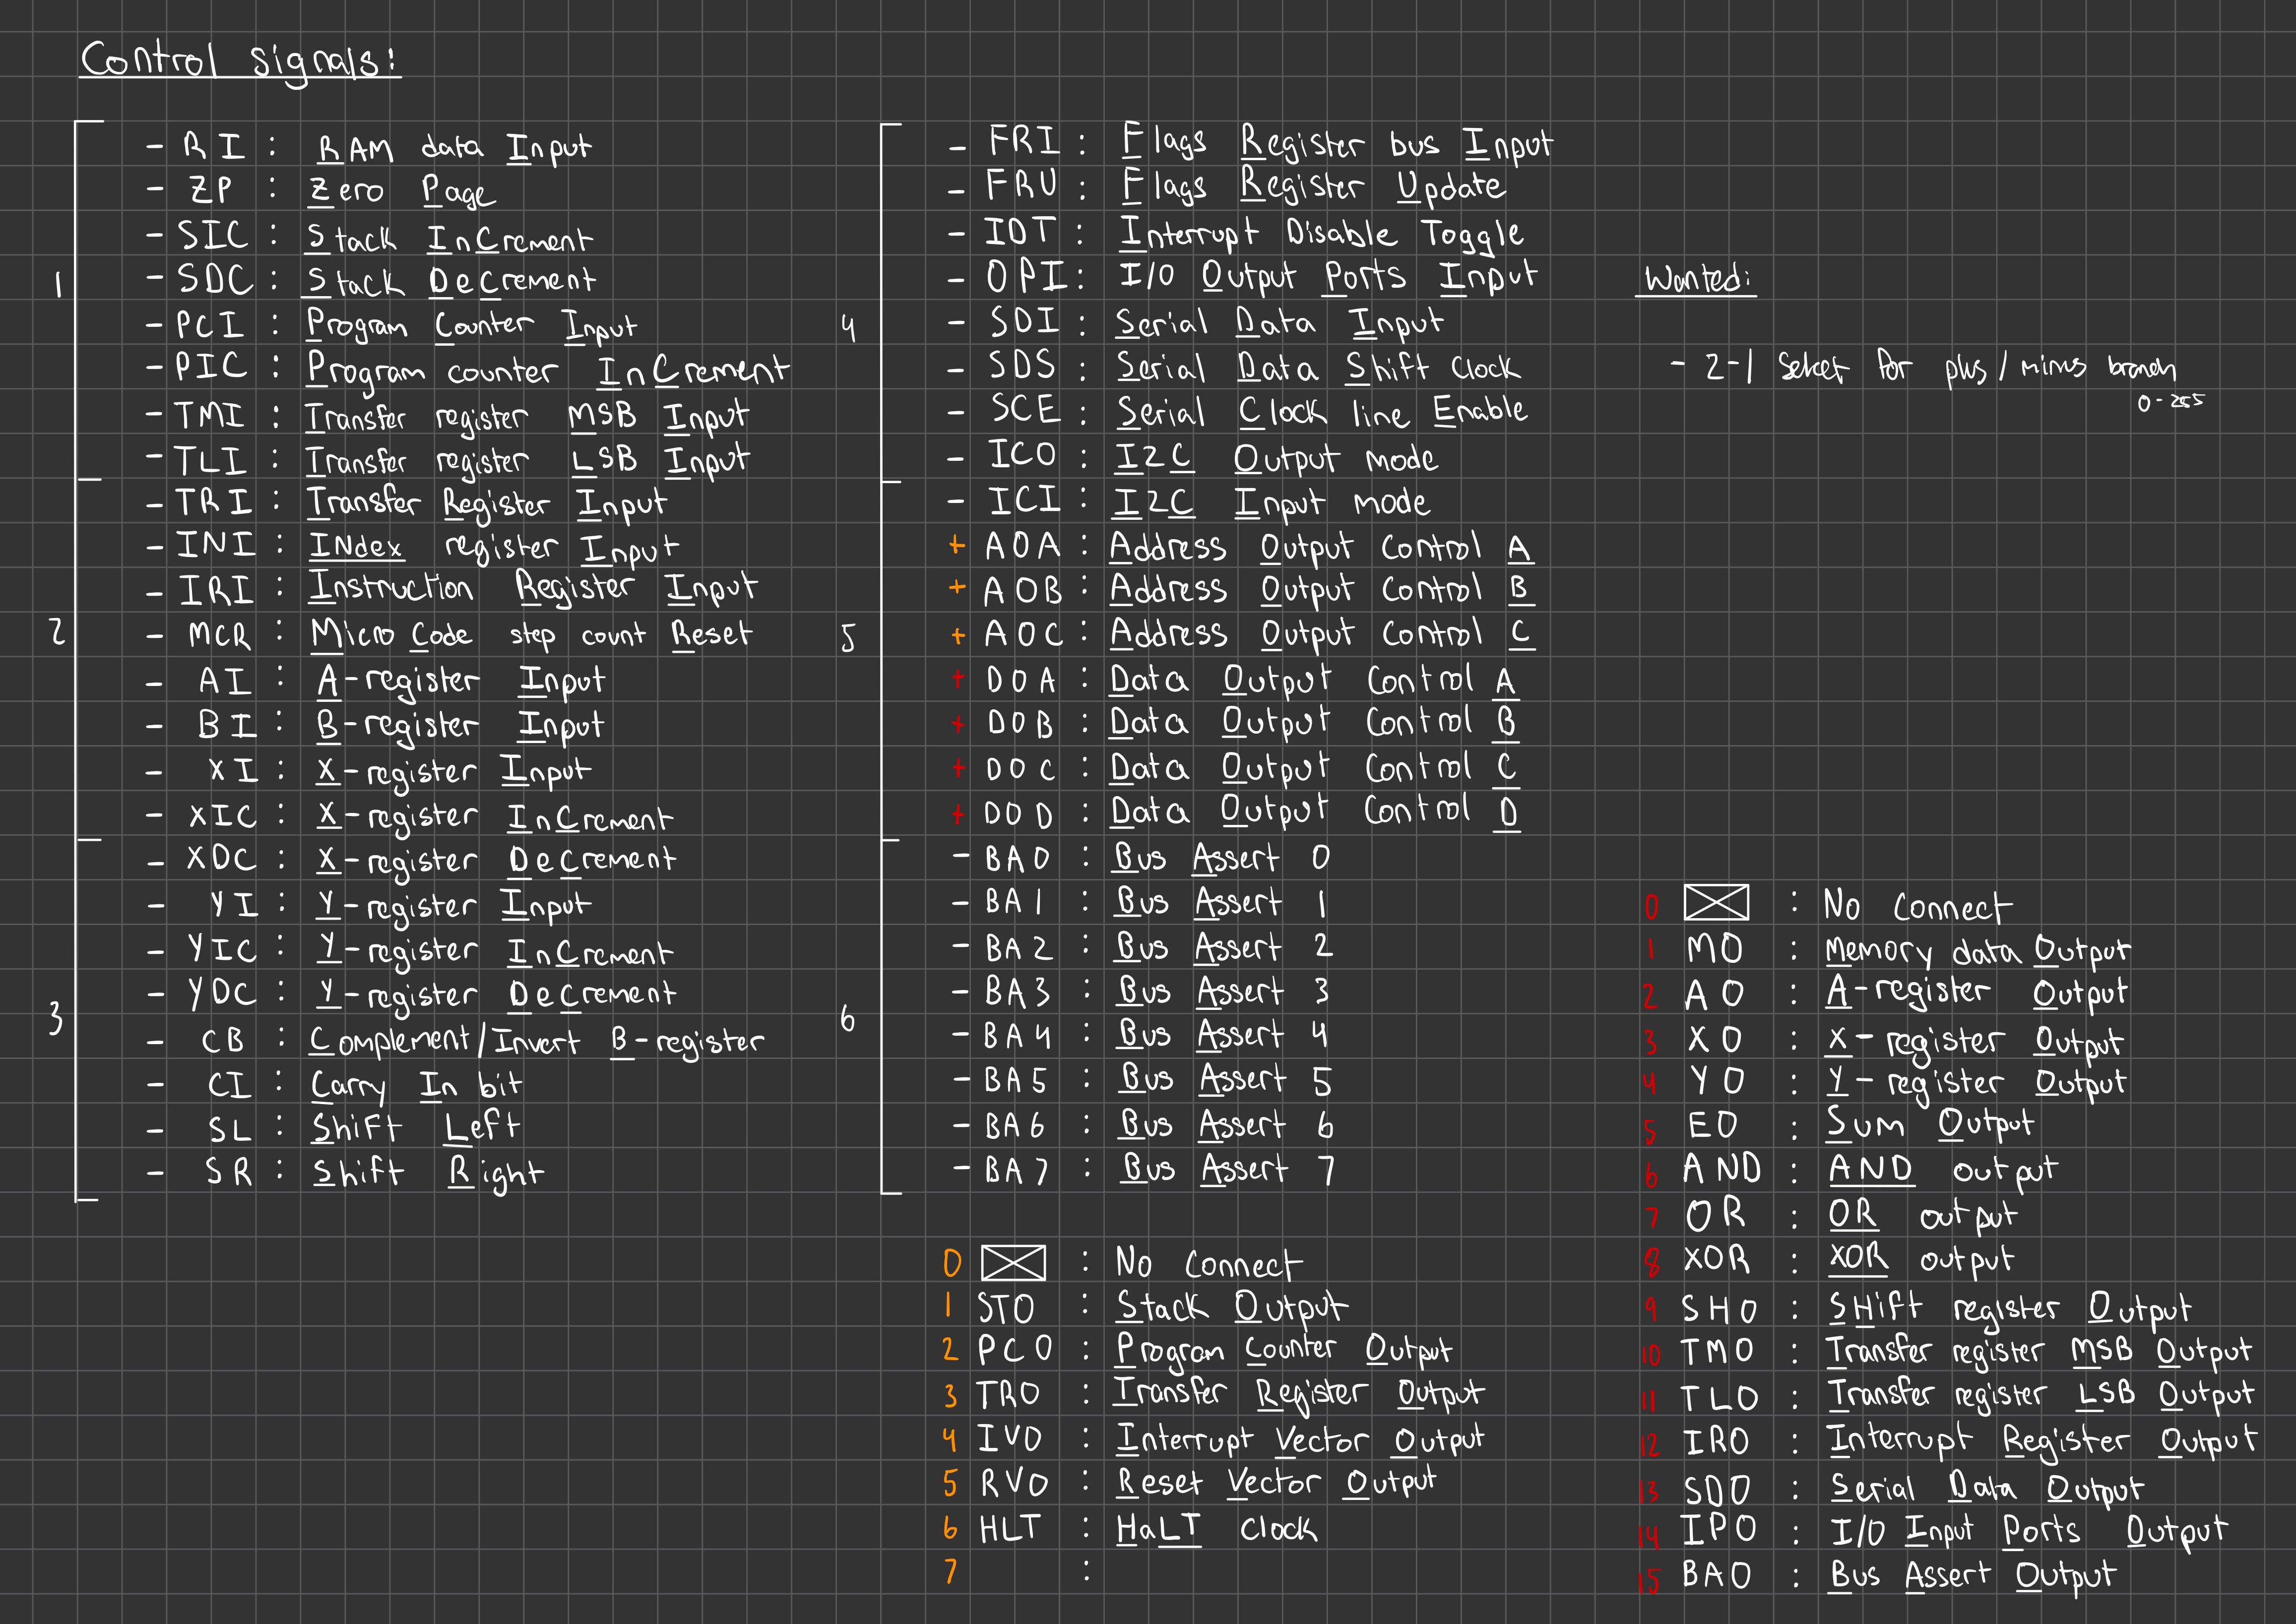 Control signals:
1
- RI : RAM data Input
- ZP : Zero Page
- SIC : Stack InCrement
- SDC : Stack DeCrement
- PCI : Program Counter Input
- PIC : Program counter InCrement
- TMI : Transfer register MSB Input
- TLI : Transfer register LSB Input
2
- TRI : Transfer Register Input
- INI : INdex register Input
- IRI : Instruction Register Input
- MCR : Micro Code step count Reset
- AI : A-register Input
- BI : B-register Input
- XI : X-register Input
- XIC : X-register InCrement
3
- XDC : X-register DeCrement
- YI : Y-register Input
- YIC : Y-register InCrement
- YDC : Y-register DeCrement
- CB : Complement/Invert B-register
- CI : Carry In bit
- SL : Shift Left
- SR : Shift Right
4
- FRI : Flags Register bus Input
- FRU : Flags Register Update
- IDT : Interrupt Disable Toggle
- OPI : I/O Output Ports Input
- SDI : Serial Data Input
- SDS : Serial Data Shift Clock
- SCE : Serial Clock line Enable
- ICO : I2C Output mode
5
- ICI : I2C Input mode
+ AOA : Address Output Control A
+ AOB : Address Output Control B
+ AOC : Address Output Control C
+ DOA : Data Output Control A
+ DOB : Data Output Control B
+ DOC : Data Output Control C
+ DOD : Data Output Control D
6
- BA0 : Bus Assert 0
- BA1 : Bus Assert 1
- BA2 : Bus Assert 2
- BA3 : Bus Assert 3
- BA4 : Bus Assert 4
- BA5 : Bus Assert 5
- BA6 : Bus Assert 6
- BA7 : Bus Assert 7
0 : No Connect
1 STO : Stack Output
2 PCO : Program Counter Output
3 TRO : Transfer Register Output
4 IVO : Interrupt Vector Output
5 RVO : Reset Vector Output
6 HLT : HaLT Clock
7 :
Wanted:
- 2-1 Select for plus/minus branch
0-255
0 : No Connect
1 MO : Memory data Output
2 AO : A-register Output
3 XO : X-register Output
4 YO : Y-register Output
5 EO : Sum Output
6 AND : AND output
7 OR : OR output
8 XOR : XOR output
9 SHO : SHift register Output
10 TMO : Transfer register MSB Output
11 TLO : Transfer register LSB Output
12 IRO : Interrupt Register Output
13 SDO : Serial Data Output
14 IPO : I/O Input Ports Output
15 BAO : Bus Assert Output